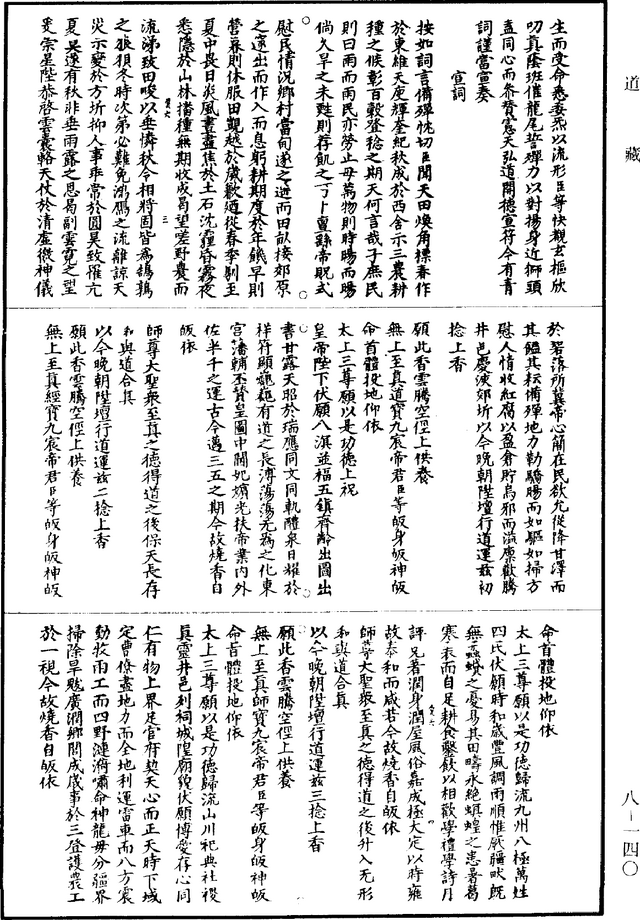 道藏
生而受命悉委炁以流形臣等快觀玄樞欣
叨真蔭班催龍尾誓殫力以對揚身近獅頭
盍同心而參贊憲天弘道開德宣符今有青
詞謹當宣奏
宣詞
按如詞言備殫忱切臣聞天田煥角標春作
於東維天庾輝奎紀秋成於西舍示三農耕
種之候彰百穀登稔之期天何言哉子庶民
則曰雨而雨民亦勞止毋萬物則時暘而暘
倘久旱之未甦則存飢之
慰民情況鄉村當甸遂之遊而田畝接郊原
之遠出而作入而息躬耕期度於年饑早則
營暮則休服田覬越於歲歉逌從春季剔至
夏中畏日炎風晝晝焦於土石沈霾昏霧夜
悉隱於山林播種無期收成曷望嗟野農而
流涕致田畯以垂憐秋令相將固皆為鵠鵝
之狼狽冬時次第必難免鴻鴈之流離諒天
災示變於方圻抑人事乖常於圓昊致罹亢
夏旲遂有秋非垂雨露之恩曷副雲霓之望
爰索星陛恭啓雲囊輅天仗於清虛微神儀
三
於碧落所冀帝心簡在民欲允從降甘澤而
其饁其耘備殫地力勒驕暘而如驅如掃方
慰人情收紅腐以盈倉貯烏邪而溢廩歡騰
井邑慶浹郊圻以今晚朝陞壇行道運茲初
捻上香
願此香雲騰空徑上供養
無上至真道寶九宸帝君臣等皈身皈神皈
命首體投地仰依
太上三尊願以是功德上祝
皇帝陛下伏願八溟並福五鎮齊齡出圖出
書甘露天昭於瑞應同文同軌醴泉日耀於
祥符顯巍巍有道之長溥蕩蕩无為之化東
宮藩輔丕贊皇圖中闈妃嬪光扶帝業內外
佐半千之運古今邁三五之期今故燒香自
皈依
師尊大聖衆至真之德得道之後保天長存
和與道合真
以今晚朝陞壇行道運茲二捻上香
願此香雲騰空徑上供養
無上至真經寶九宸帝君臣等皈身皈神皈
命首體投地仰依
太上三尊願以是功德歸流九州八極萬姓
四氏伏願時和歲豐風調雨順惟厥疆畎既
無蟊蠈之憂易其田疇永絕螟蝗之患暑葛
寒表而自足耕食鑿飲以相歡學禮學詩月
評兄著潤身潤屋風俗嘉成極大定以時雍
故泰和而咸若今故燒香自皈依
師尊大聖衆至真之德得道之後升入无形
和與道合真
以今晚朝陞壇行道運茲三捻上香
願此香雲騰空徑上供養
無上至真師寶九宸帝君臣等皈身皈神皈
命首體投地仰依
太上三尊願以是功德歸流山川祀典社稷
真靈井邑列祠城隍廟貌伏願博愛存心同
仁有物上界足官府契天心而正天時下城
定曹僚盡地力而全地利運雷車而八方震
動牧雨工而四野漣漪嘯命神龍毋分疆界
掃除旱魃廣潤鄉閭成歲事於三登護農工
於一視今故燒香自皈依
八-一四〇